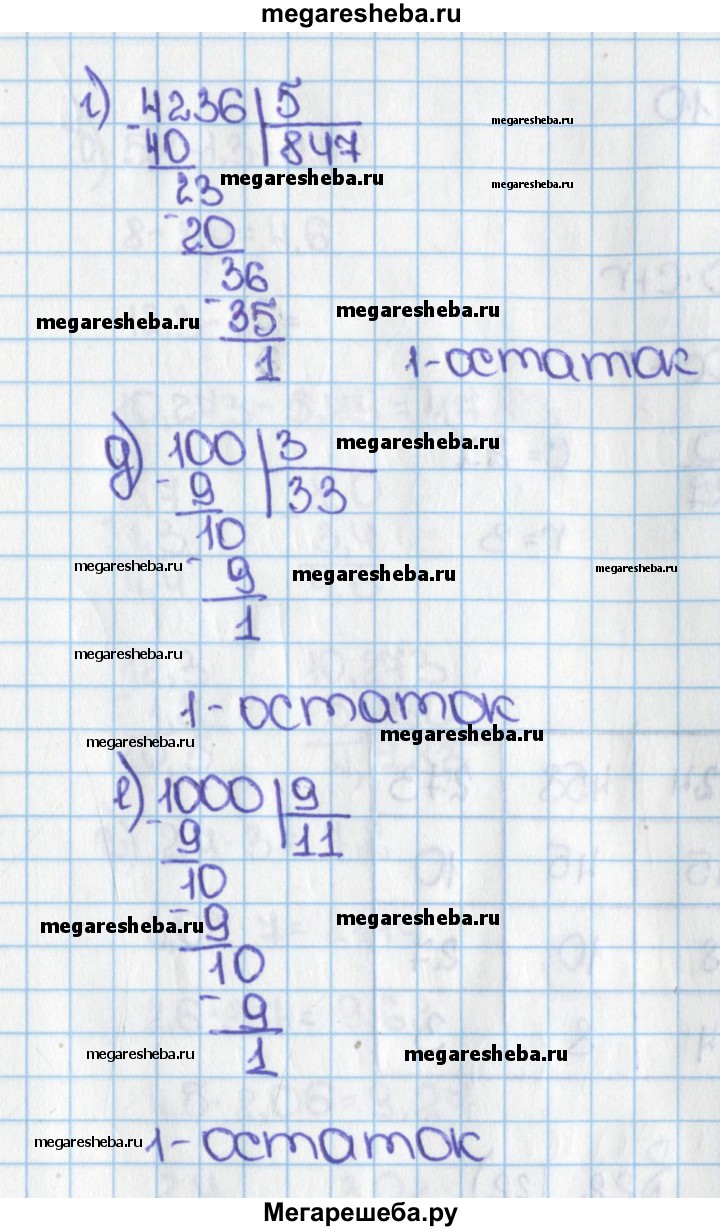 megaresheba.ru
г) 4236 | 5
- 40 | 847
megaresheba.ru
megaresheba.ru
23
megaresheba.ru
- 20
36
megaresheba.ru
- 35
megaresheba.ru
1
1-остаток
д) 100 | 3
megaresheba.ru
- 9 | 33
10
megaresheba.ru
- 9
megaresheba.ru
megaresheba.ru
1
megaresheba.ru
1-остаток
megaresheba.ru
megaresheba.ru
е) 1000 | 9
- 9 | 11
10
megaresheba.ru
- 9
megaresheba.ru
10
- 9
megaresheba.ru
1
megaresheba.ru
megaresheba.ru
1-остаток
Мегарешеба.ру